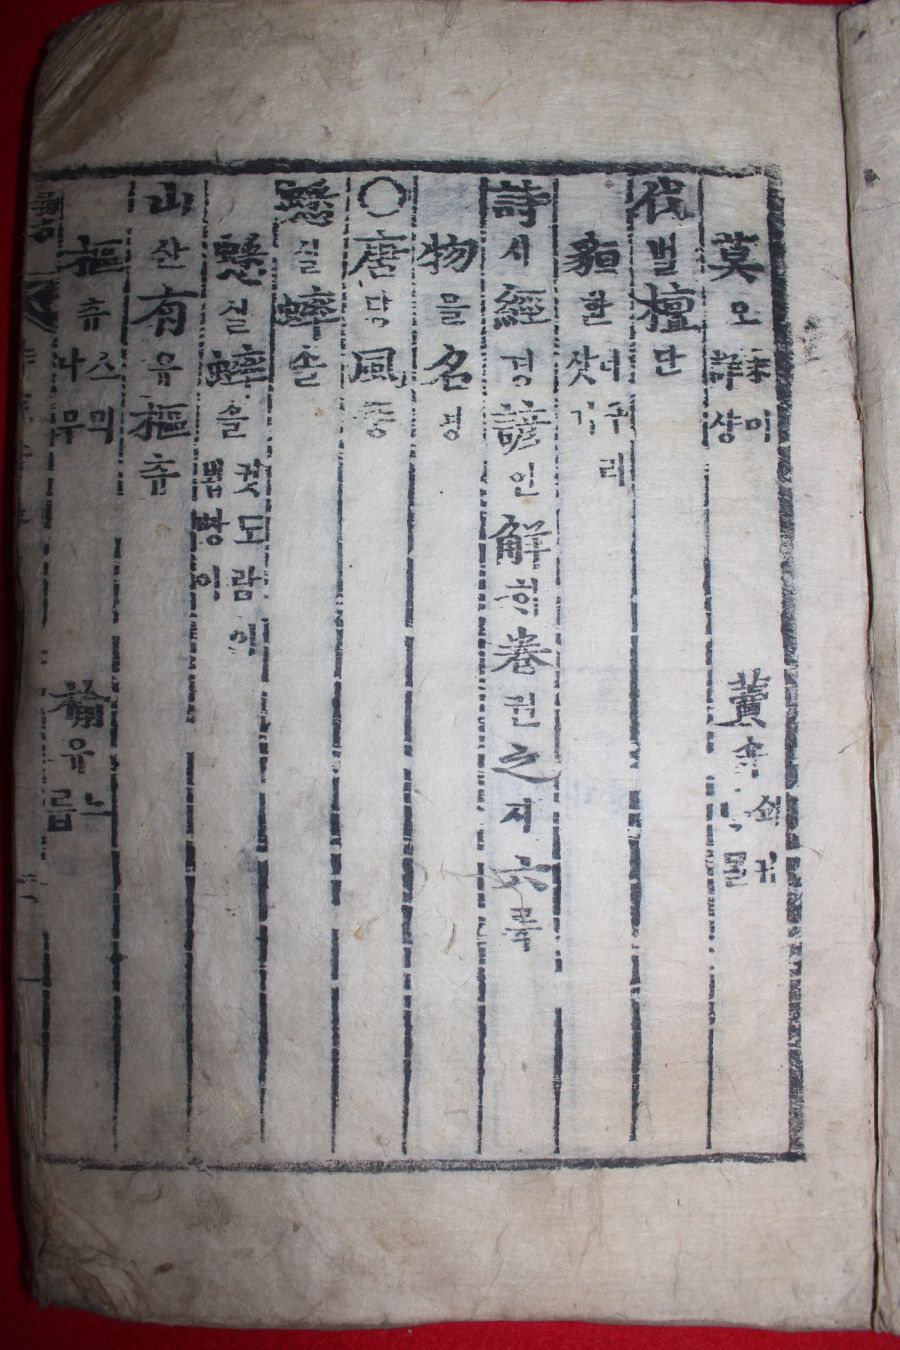 莫모 未미詳상 藚쇽 쇠귀ᄂᆞ물
伐벌檀단
貆환 너구리삿기
詩시經경諺언解ᄒᆡ卷권之지六륙
物믈名명
○唐당風풍
蟋실蟀솔
蟋실蟀솔 귓도람이 뵙쟝이
山산有유樞츄
樞츄 스믜나무 楡유 느릅